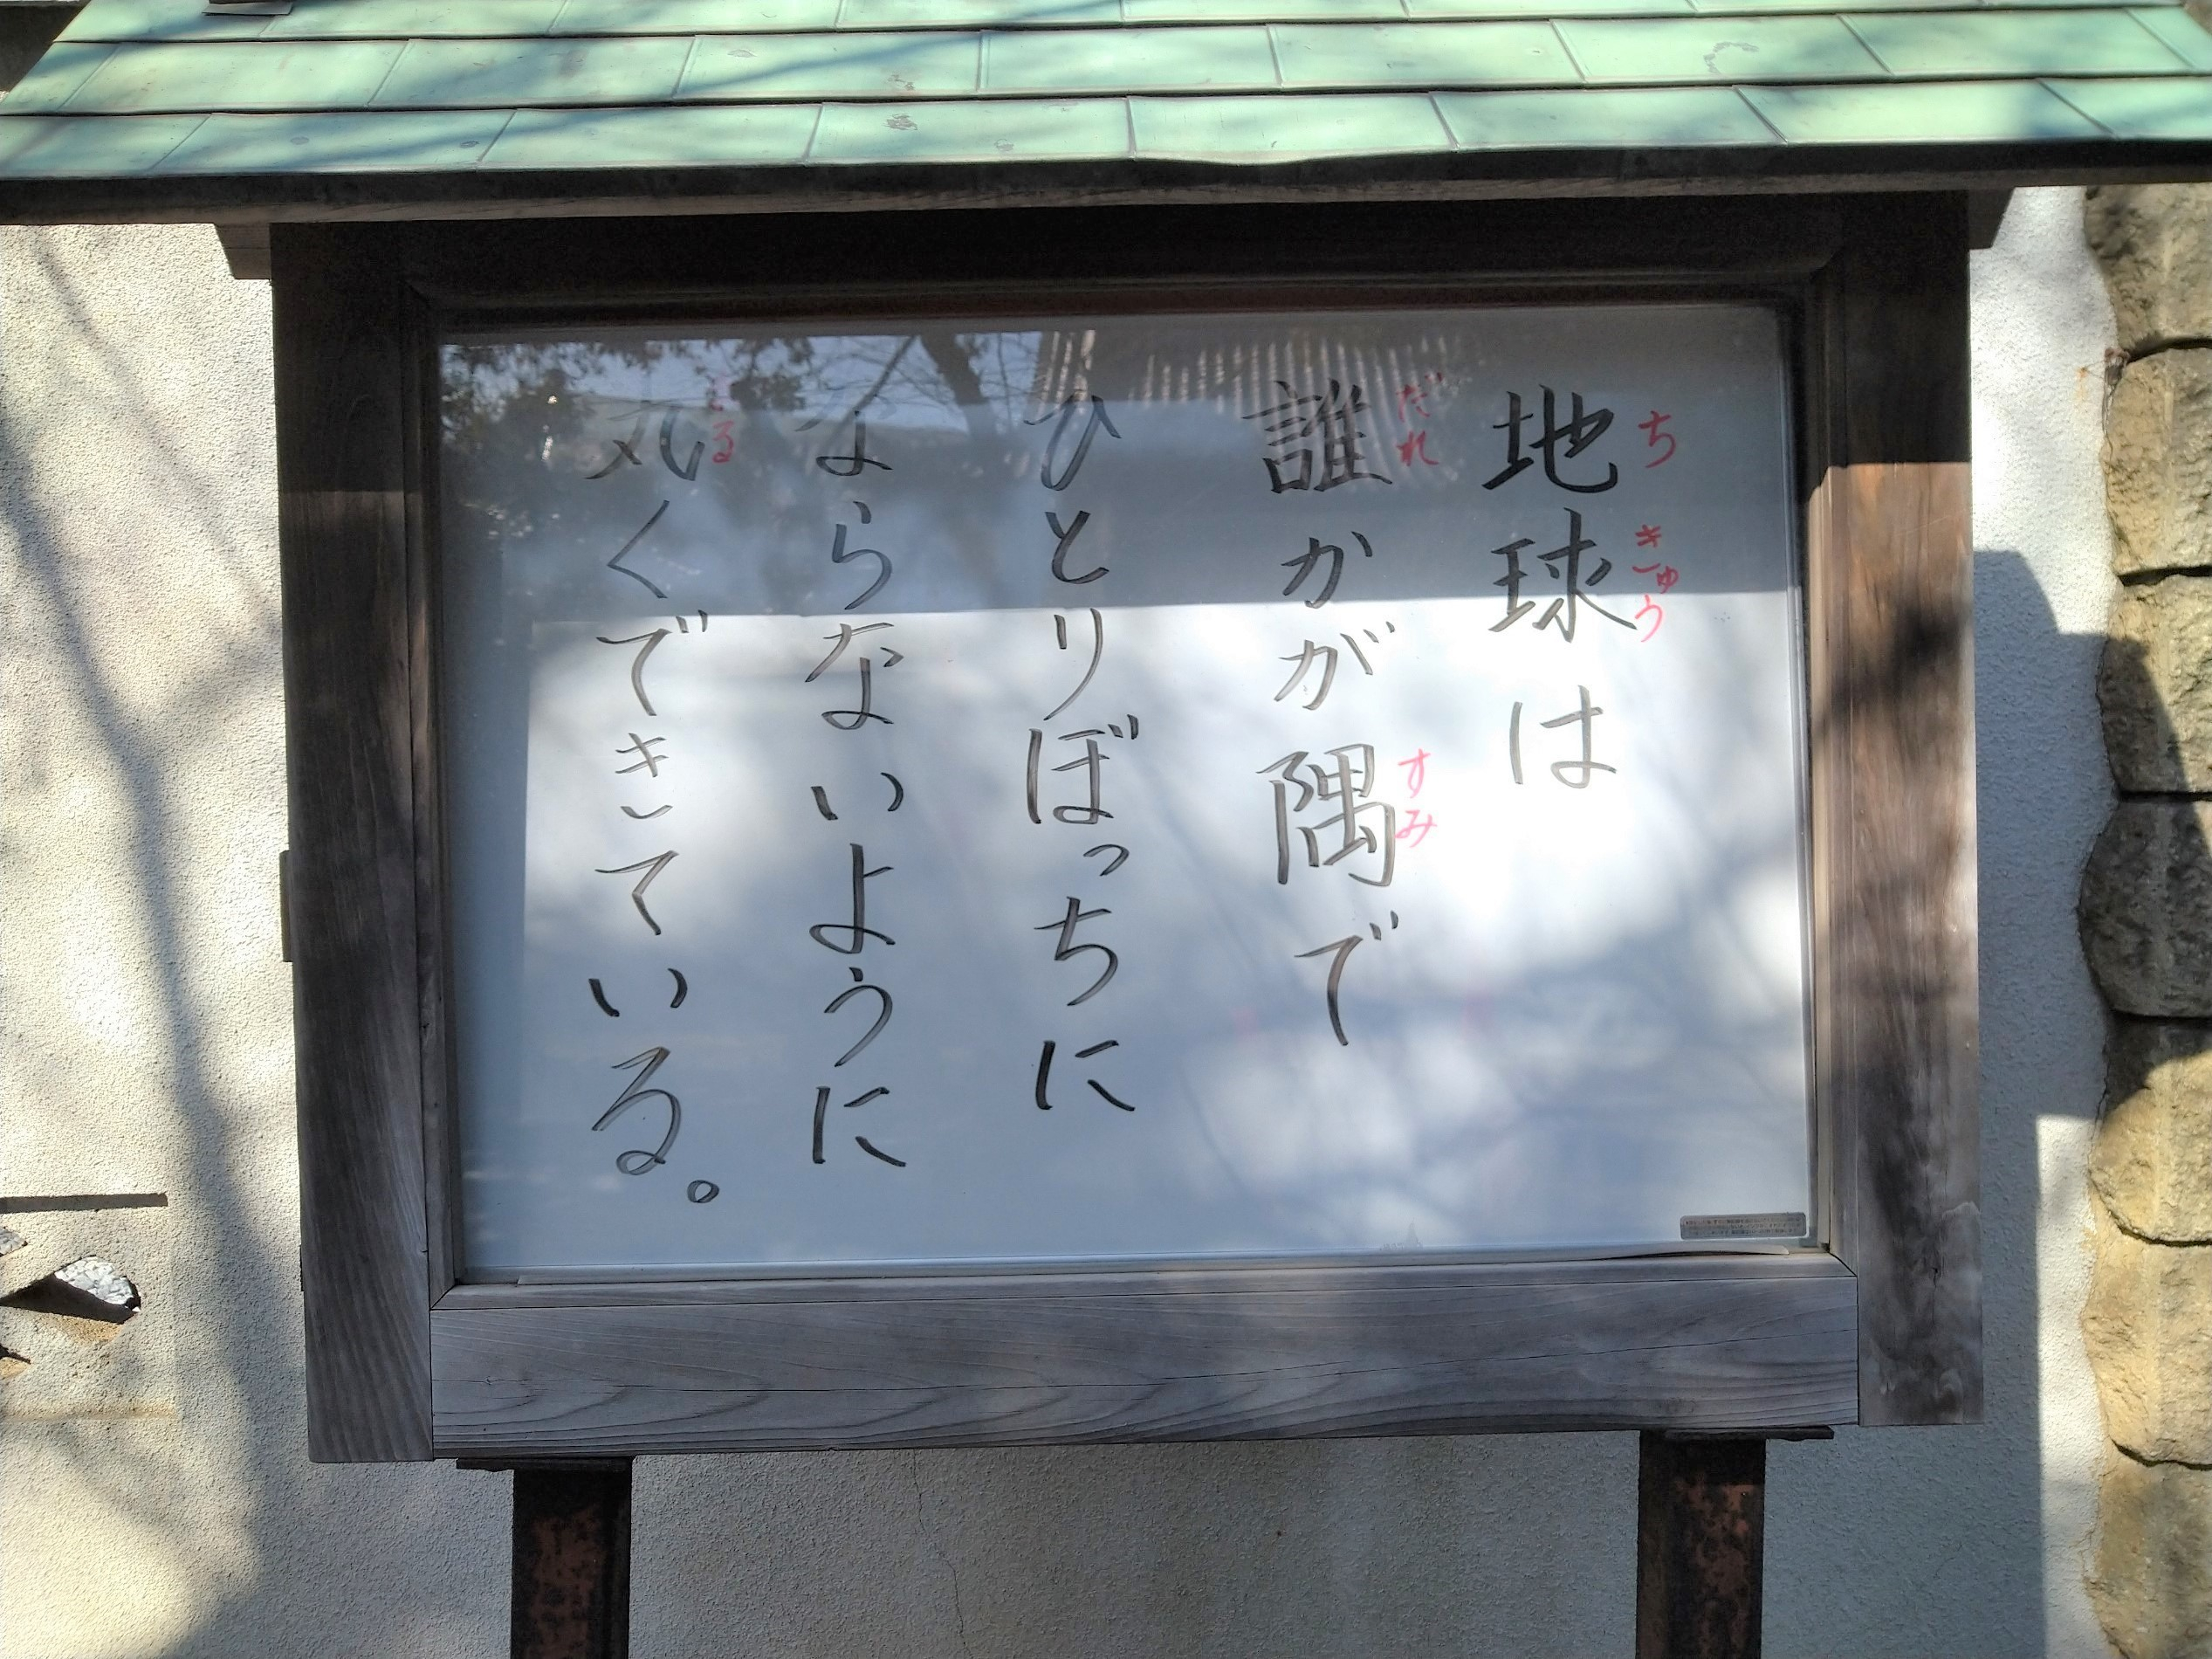 ちきゅう
地球は
だれ すみ
誰かが隅で
ひとりぼっちに
ならないように
まる
丸くできている。